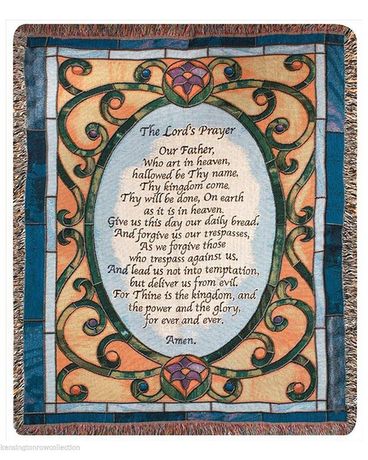 The Lord's Prayer
Our Father,
Who art in heaven,
hallowed be Thy name,
Thy kingdom come.
Thy will be done, On earth
as it is in heaven.
Give us this day our daily bread.
And forgive us our trespasses,
As we forgive those
who trespass against us.
And lead us not into temptation,
but deliver us from evil.
For Thine is the kingdom, and
the power and the glory,
for ever and ever.
Amen.
kensingtonrowcollection